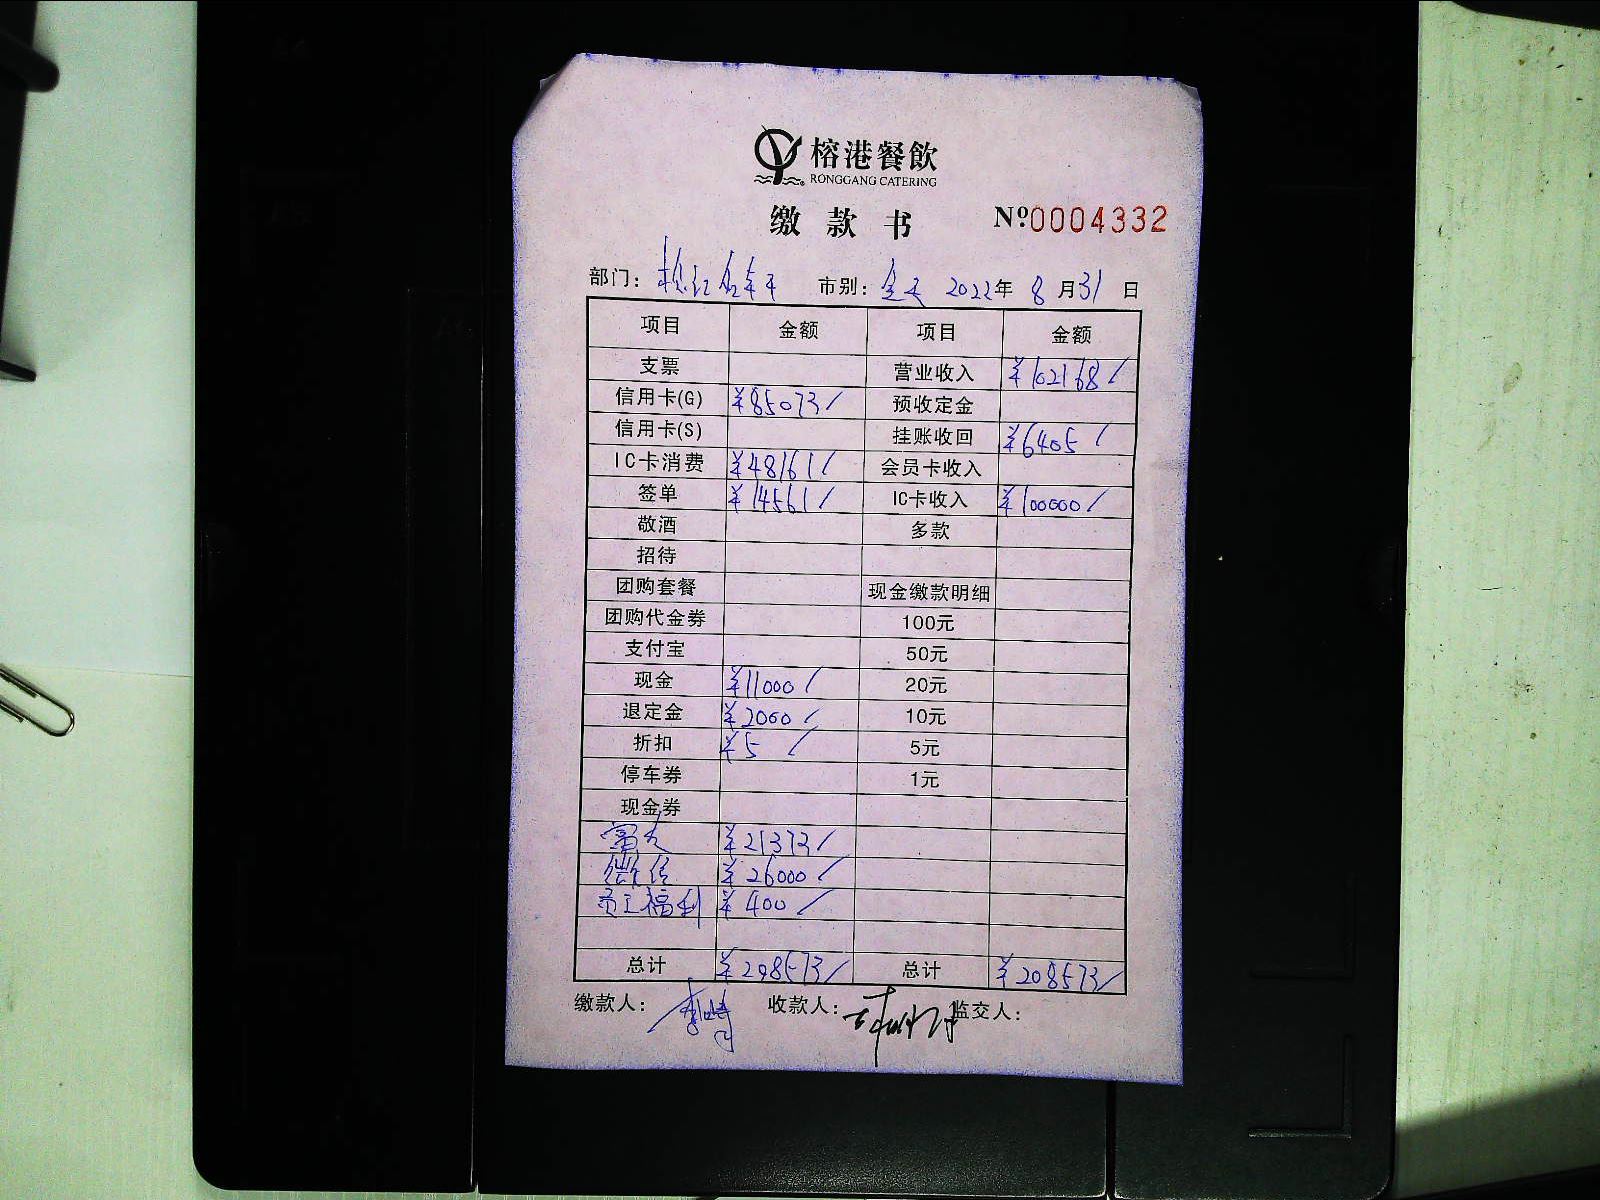 榕港餐飲
RONGGANG CATERING
缴款书 Nº0004332
部门： 市别：全天 2022年8月31日
项目 金额 项目 金额
支票 营业收入 ¥102168/
信用卡(G) ¥85073/ 预收定金
信用卡(S) 挂账收回 ¥6405/
IC卡消费 ¥48161/ 会员卡收入
签单 ¥14561/ IC卡收入 ¥100000/
敬酒 多款
招待
团购套餐 现金缴款明细
团购代金券 100元
支付宝 50元
现金 ¥11000/ 20元
退定金 ¥2000/ 10元
折扣 ¥5/ 5元
停车券 1元
现金券
¥21373/
微信 ¥26000/
员工福利 ¥400/
总计 ¥208573/ 总计 ¥208573/
缴款人： 收款人： 监交人：